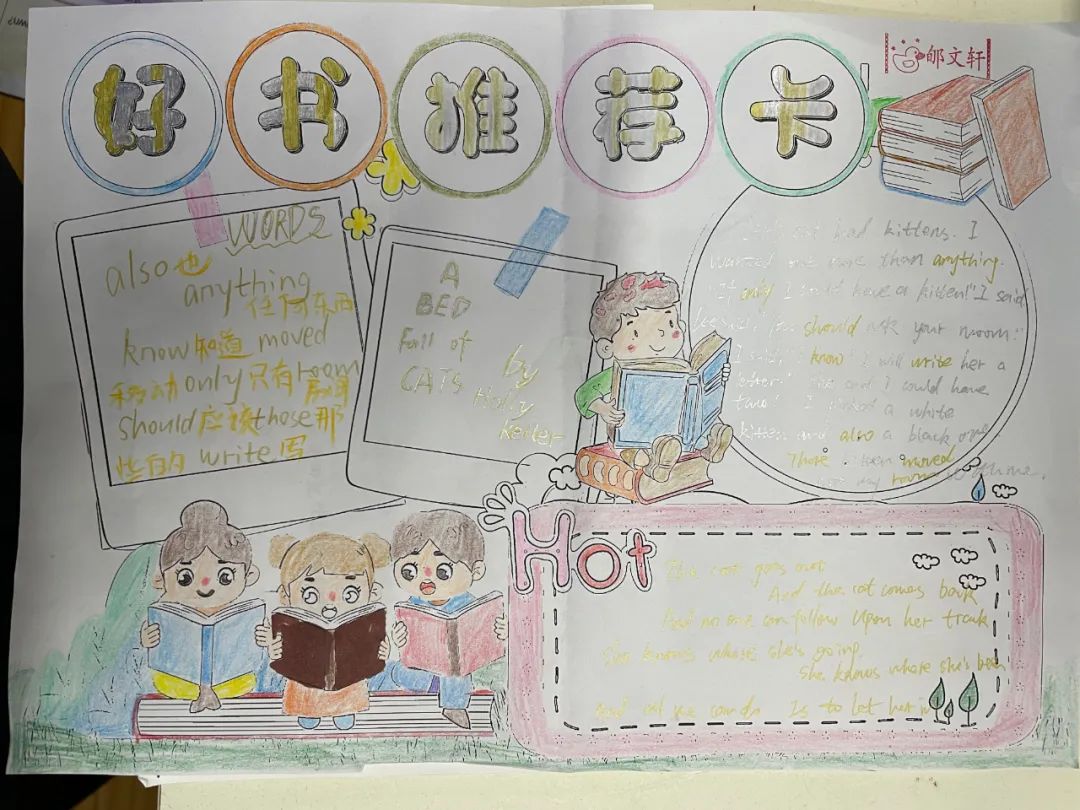 好书推荐卡
邮文轩
WORDS
also 也
anything
任何东西
know 知道 moved
移动 only 只有 room
房间
should 应该 those 那
些的 write 写
A
BED
Full of
CATS
by
Holly
Keller
cat had kittens. I
wanted one more than anything.
"If only I could have a kitten!" I said
should ask your mom."
I said, "I know! I will write her a
letter." and I could have
two! I picked a white
kitten and also a black one.
Those kitten moved
my room
Hot
The cat goes out
And the cat comes back
And no one can follow Upon her track
She knows where she's going
She knows where she's been
And all we can do Is to let her in